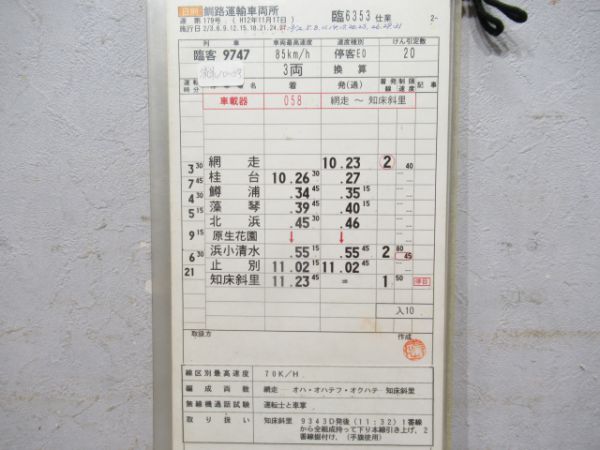 日別 釧路運輸車両所 臨6353仕業 2-
運 第179号. (H12年11月17日)
施行日 2/3.6.9.12.15.18.21.24.
列車 車両最高速度 速度種別 けん引定数
臨客 9747 85km/h 停客E0 20
3両 換算
運転時分 着 発(通) 着発線 制限速度 記事
車載器 058 網走 〜 知床斜里
網走 10.23 ② 40
3 30
桂台 10.26 30 .27
7 45
鱒浦 .34 45 .35 15
4 30
藻琴 .39 45 .40 15
5 15
北浜 .45 30 .46
原生花園 ↓ ↓
9 15
浜小清水 .55 15 .55 45 2 80 45
6 30
止別 11.02 15 11.02 45
21
知床斜里 11.23 45 = 1 50 停目
入10
取扱方 作成
線区別最高速度 70K/H
編成両数 網走 ― オハ・オハテフ・オクハテ ― 知床斜里
無線機通話試験 運転士と車掌
取り扱い 知床斜里 9343D発後(11:32)1番線
から全組成持って下り本線引き上げ、2
番線据付け、(手旗使用)